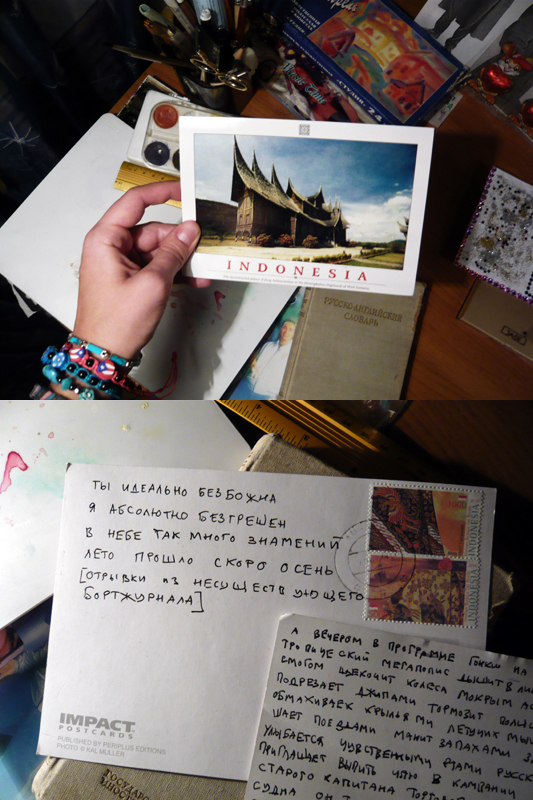 INDONESIA
РУССКО-АНГЛИЙСКИЙ
СЛОВАРЬ
24
ТЫ ИДЕАЛЬНО БЕЗБОЖНА
Я АБСОЛЮТНО БЕЗГРЕШЕН
В НЕБЕ ТАК МНОГО ЗНАМЕНИЙ
ЛЕТО ПРОШЛО СКОРО ОСЕНЬ
[ОТРЫВКИ ИЗ НЕСУЩЕСТВУЮЩЕГО
БОРТЖУРНАЛА]
INDONESIA
INDONESIA
IMPACT
POSTCARDS
PUBLISHED BY PERIPLUS EDITIONS
PHOTO © KAL MULLER
А ВЕЧЕРОМ В ПРОГРАММЕ ГОНКИ НА
ТРОПИЧЕСКИЙ МЕГАПОЛИС ДЫШИТ В
СМОГОМ ЩЕКОЧИТ КОЛЕСА МОКРЫМ
ПОДРЕЗАЕТ ДЖИПАМИ ТОРМОЗИТ
ОБМАХИВАЕТ КРЫЛЬЯМИ ЛЕТУЧИХ
ШАЕТ ПОЕЗДАМИ МАНИТ ЗАПАХАМИ
УЛЫБАЕТСЯ ЧУВСТВЕННЫМИ РТАМИ
ПРИГЛАШАЕТ ВЫПИТЬ ЧАЮ В КАМПАНИИ
СТАРОГО КАПИТАНА
СУДНА ОН